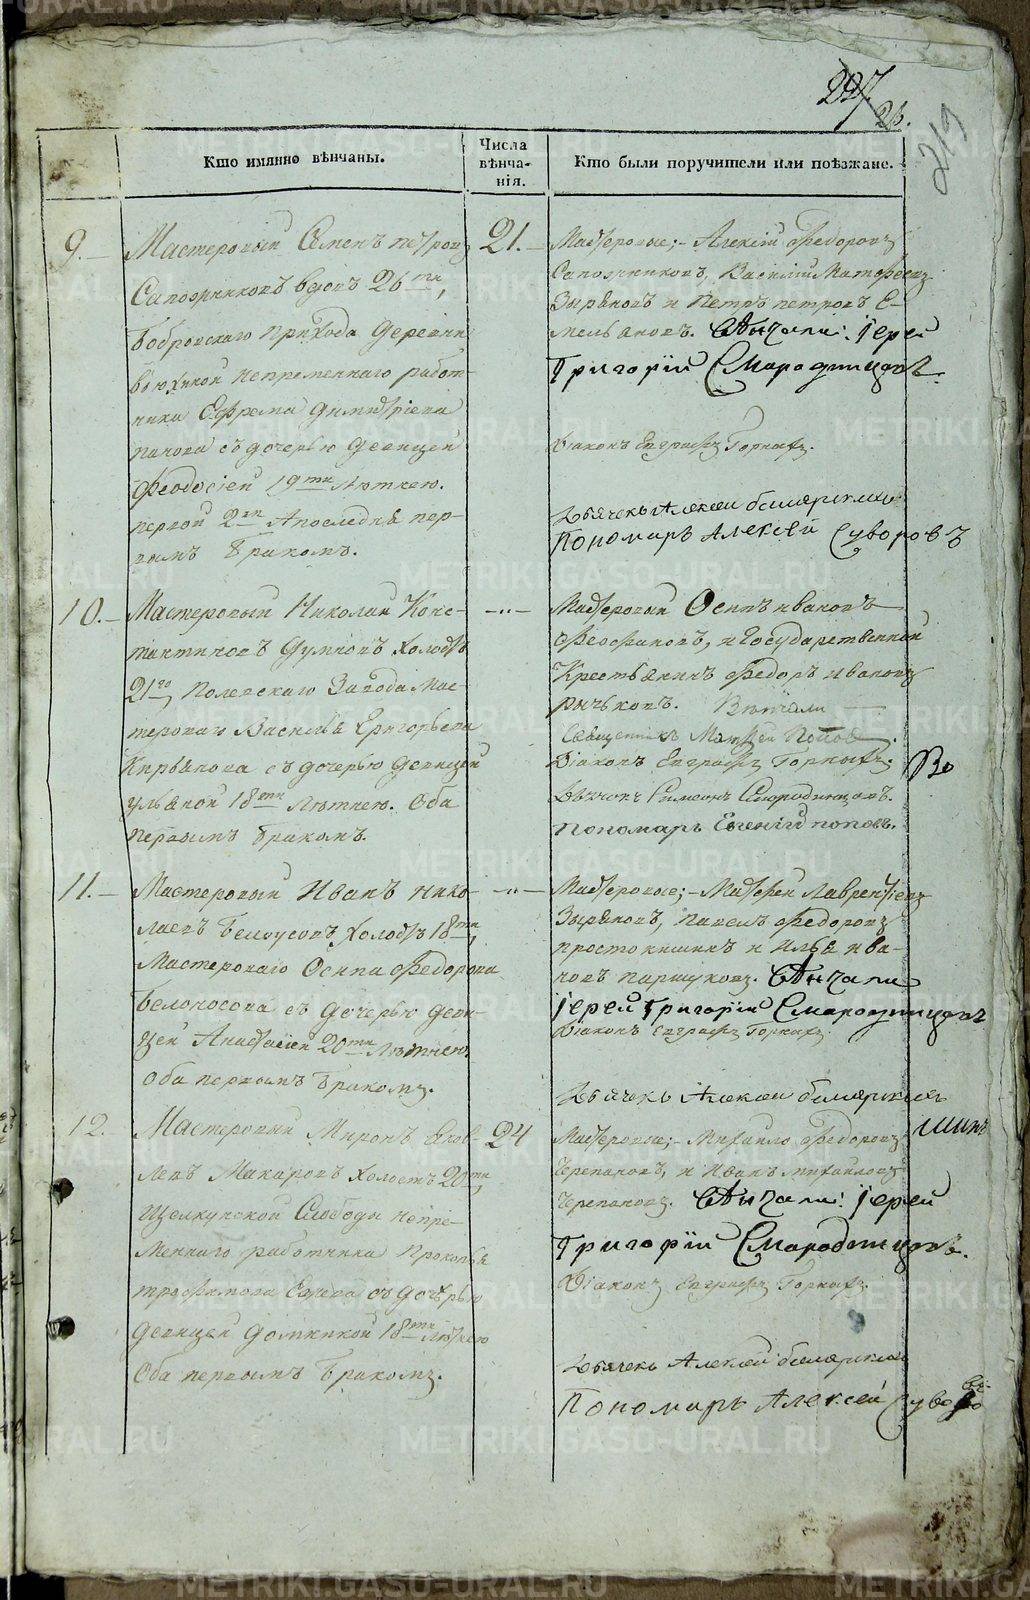 227
26.
219
Кто имянно вѣнчаны.
Числа
вѣнча-
нія.
Кто были поручители или поѣзжане.
9.
Мастеровый Семенъ петровъ
Сапожниковъ вдовъ 26ти,
Бобровскаго прихода деревни
вьюхиной непременнаго работ-
ника Ефрема Димитріева
панова съ дочерью девицей
Феодосіей 19ти лѣтнею.
первой 2мъ Апоследня пер-
вымъ бракомъ.
21.
Мастеровые;- Алексій Федоровъ
Сапожниковъ, Василий Матфеевъ
Зыряновъ и Петръ петровъ Е-
мельяновъ. Вѣнчали: Іерей
Григорій Смародинцовъ.
Діаконъ Евграфъ Горныхъ.
Дьячекъ Алексей билярский
Пономарь Алексей Суворовъ
10.
Мастеровый Николай Конс-
тантиновъ Думновъ холостъ
21го, Полевскаго Завода Мас-
тероваго Василья Григорьева
Кирьянова съ дочерью девицей
ульяной 18ти Лѣтнею. Оба
первымъ бракомъ.
-"-
Мастеровый Осипъ ивановъ
Феофановъ, и Государственной
Крестьянинъ Федоръ ивановъ
рычковъ. Вѣнчали
Священникъ Матфей Поповъ.
Діаконъ Евграфъ Горныхъ.
Дьячокъ Симеонъ Смородинцовъ.
пономарь Евгений поповъ.
Во
11.
Мастеровый Иванъ Нико-
лаевъ Белоусовъ холостъ 18ти,
Мастероваго Осипа Федорова
Белоносова съ дочерью деви-
цей Анастасіей 20ти Лѣтнею
Оба первымъ бракомъ.
-"-
Мастеровые;- Матфей Лаврентіевъ
Зыряновъ, павелъ Федоровъ
простокишинъ и Илья ива-
новъ паршуковъ. Вѣнчали
Іерей Григорій Смародинцовъ
Діаконъ Евграфъ Горныхъ.
Дьячекъ Алексей билярский
шинъ
12.
Мастеровый Миронъ Яков-
левъ Макаровъ Холостъ 20ти,
Щелкунской Слободы непре-
меннаго работника Прокопья
трофимова съ дочерью
девицей домникой 18ти лѣтнею
Оба первымъ бракомъ.
24
Мастеровые;- Михайло Федоровъ
Черепановъ, и Иванъ михайловъ
Черепановъ. Вѣнчали: Іерей
Григорій Смародинцовъ.
Діаконъ Евграфъ Горныхъ.
Дьячекъ Алексей билярский
Пономарь Алексей Суворовъ
METRIKI.GASO-URAL.RU